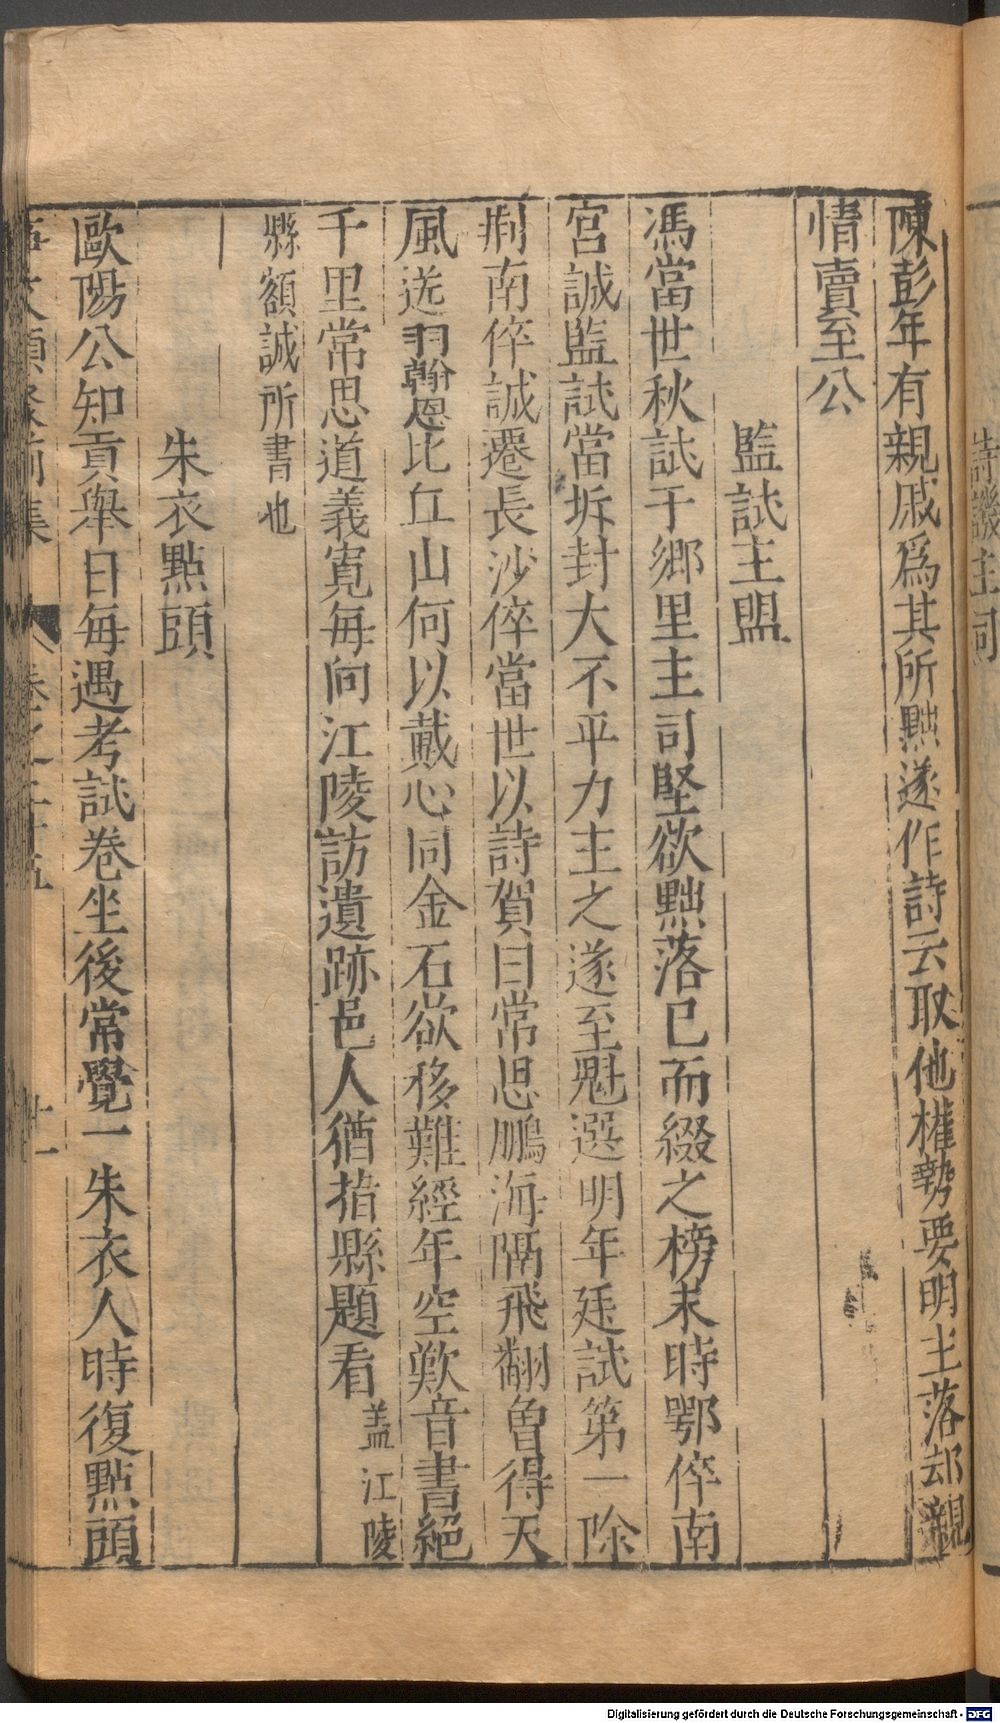 詩譏主司
陳彭年有親戚爲其所黜遂作詩云取他權勢要明主落却親
情賣至公
監試主盟
馮當世秋試于鄉里主司堅欲黜落已而綴之榜末時鄂倅南
宮誠監試當坼封大不平力主之遂至魁選明年廷試第一除
荆南倅誠遷長沙倅當世以詩賀曰常思鵬海隔飛翻曾得天
風送羽翰恩比丘山何以戴心同金石欲移難經年空歎音書絕
千里常思道義寬每向江陵訪遺跡邑人猶指縣題看盖江陵
縣額誠所書也
朱衣點頭
歐陽公知貢舉日每遇考試卷坐後常覺一朱衣人時復點頭
事文類聚前集 卷之二十五 廿一
Digitalisierung gefördert durch die Deutsche Forschungsgemeinschaft - DFG